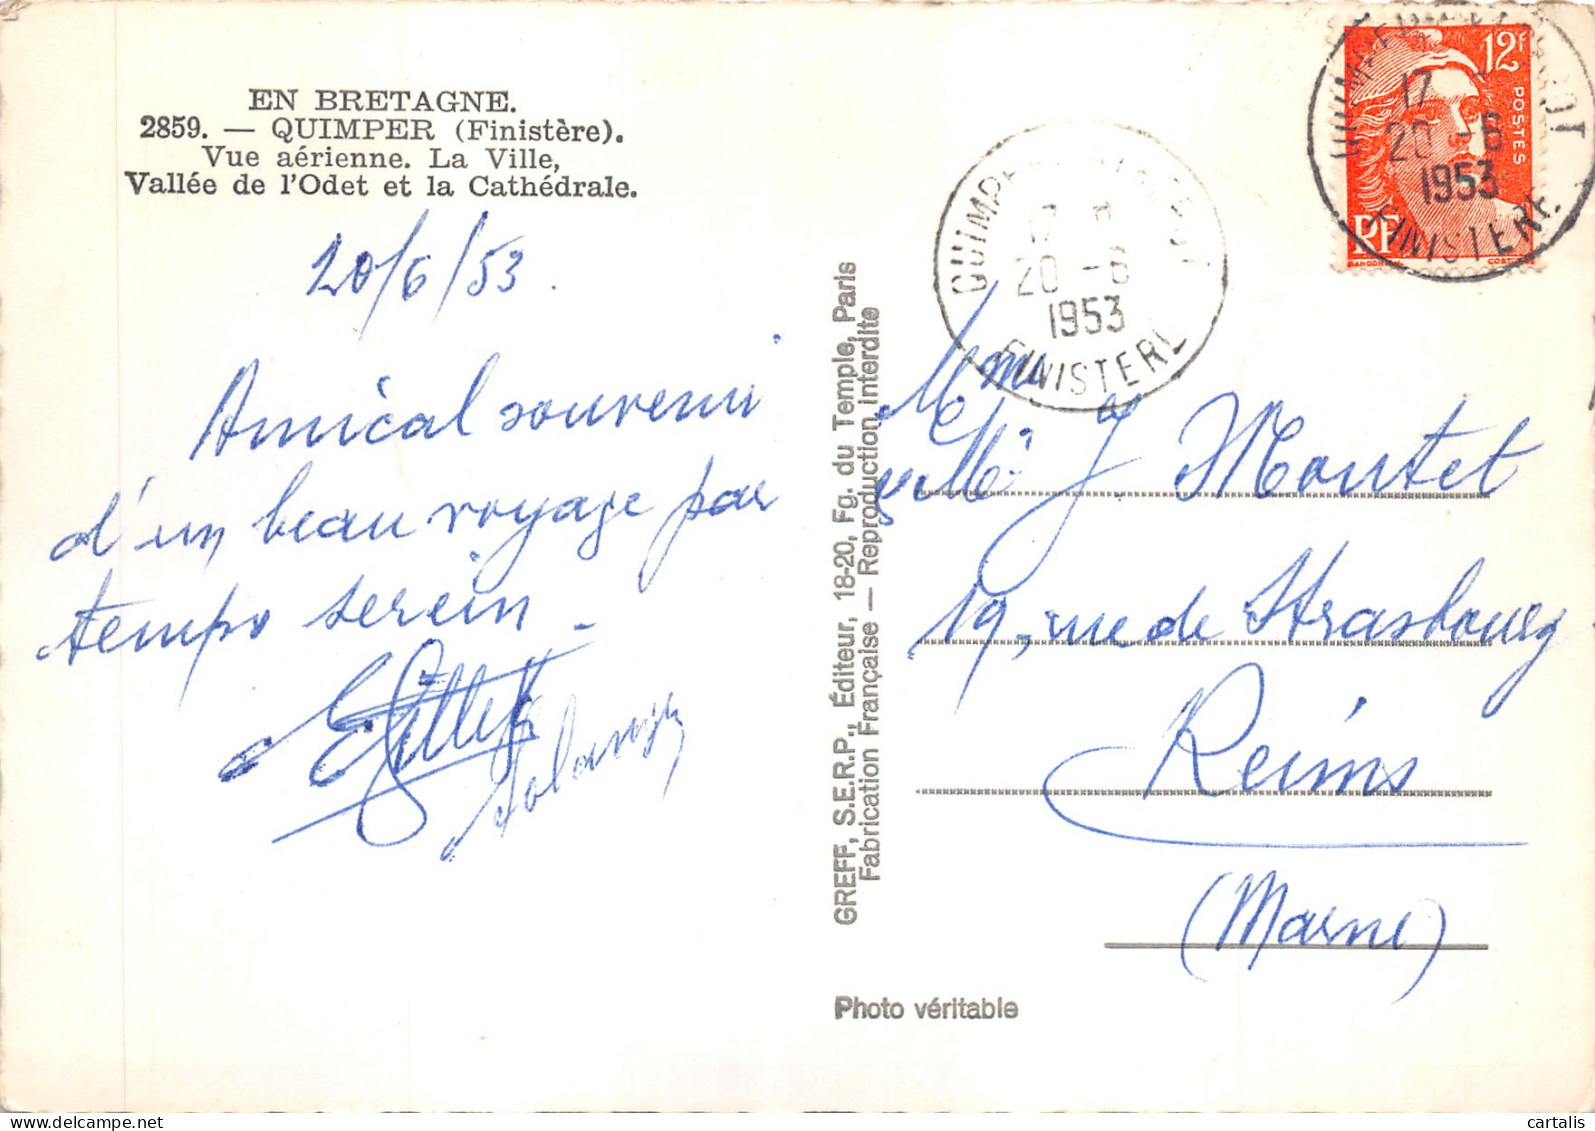 EN BRETAGNE.
2859. — QUIMPER (Finistère).
Vue aérienne. La Ville,
Vallée de l'Odet et la Cathédrale.
20/6/53.
Amical souvenir
d'un beau voyage par
temps serein.
Solange
GREFF, S.E.R.P., Éditeur, 18-20, Fg. du Temple, Paris
Fabrication Française — Reproduction interdite
Photo véritable
12F
POSTES
RF
17
20 -6
1953
FINISTERE
20 -6
1953
FINISTERE
Mme
J. Montet
19, rue de Strasbourg
Reims
(Marne)
cartalis